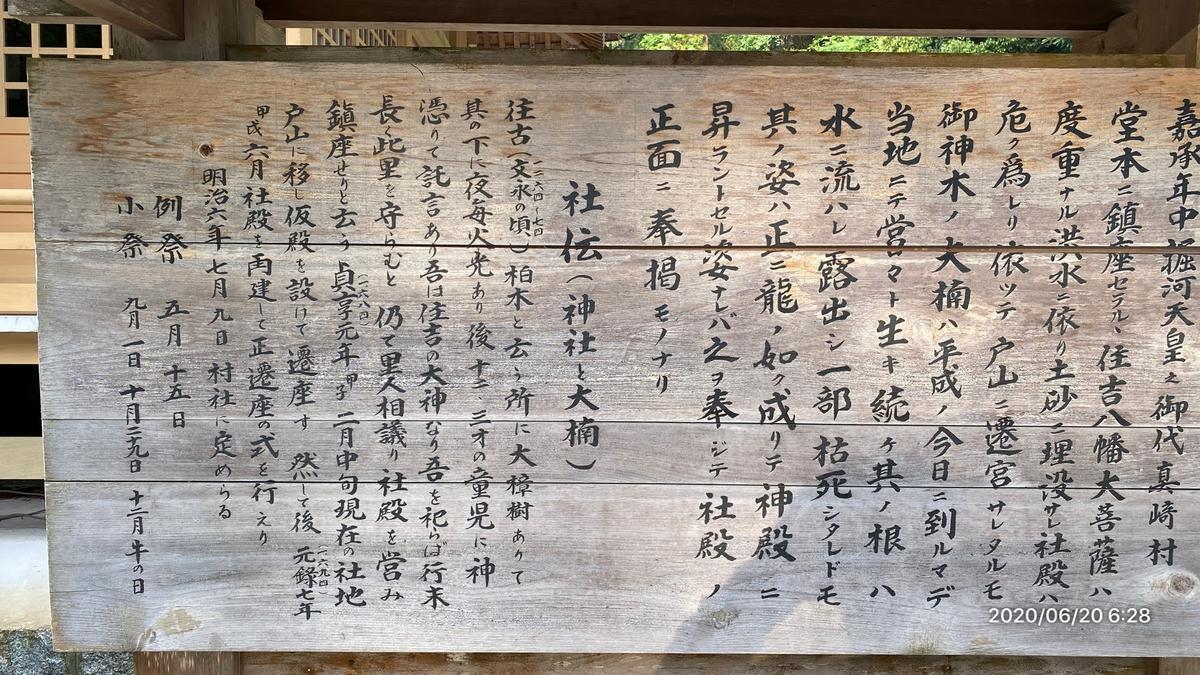 嘉承年中堀河天皇之御代真崎村
堂本ニ鎮座セラルヽ住吉八幡大菩薩ハ
度重ナル洪水ニ依り土砂ニ埋没サレ社殿ハ
危ク為レり依ツテ戸山ニ遷宮サレタルモ
御神木ノ大楠ハ平成ノ今日ニ到ルマデ
当地ニテ営々マト生キ続ケ其ノ根ハ
水ニ流ハレ露出シ一部枯死シタレドモ
其ノ姿ハ正ニ龍ノ如ク成リテ神殿ニ
昇ラントセル姿ナレバ之ヲ奉ジテ社殿ノ
正面ニ奉掲モノナリ
社伝(神社と大楠)
往古(文永の頃)(一二六四〜七四)柏木と云う所に大樟樹ありて
其の下に夜毎火光あり後十二、三才の童児に神
憑りて託言あり吾は住吉の大神なり吾を祀らば行末
長く此里を守らむと仍て里人相議り社殿を営み
鎮座せりと云う貞享元年(一六八四)甲子二月中旬現在の社地
戸山に移し仮殿を設けて遷座す然して後元錄七年(一六九四)
甲戌六月社殿を再建して正遷座の式を行えり
明治六年七月九日村社に定めらる
例祭 五月十五日
小祭 九月一日 十月二十九日 十二月牛の日
2020/06/20 6:28